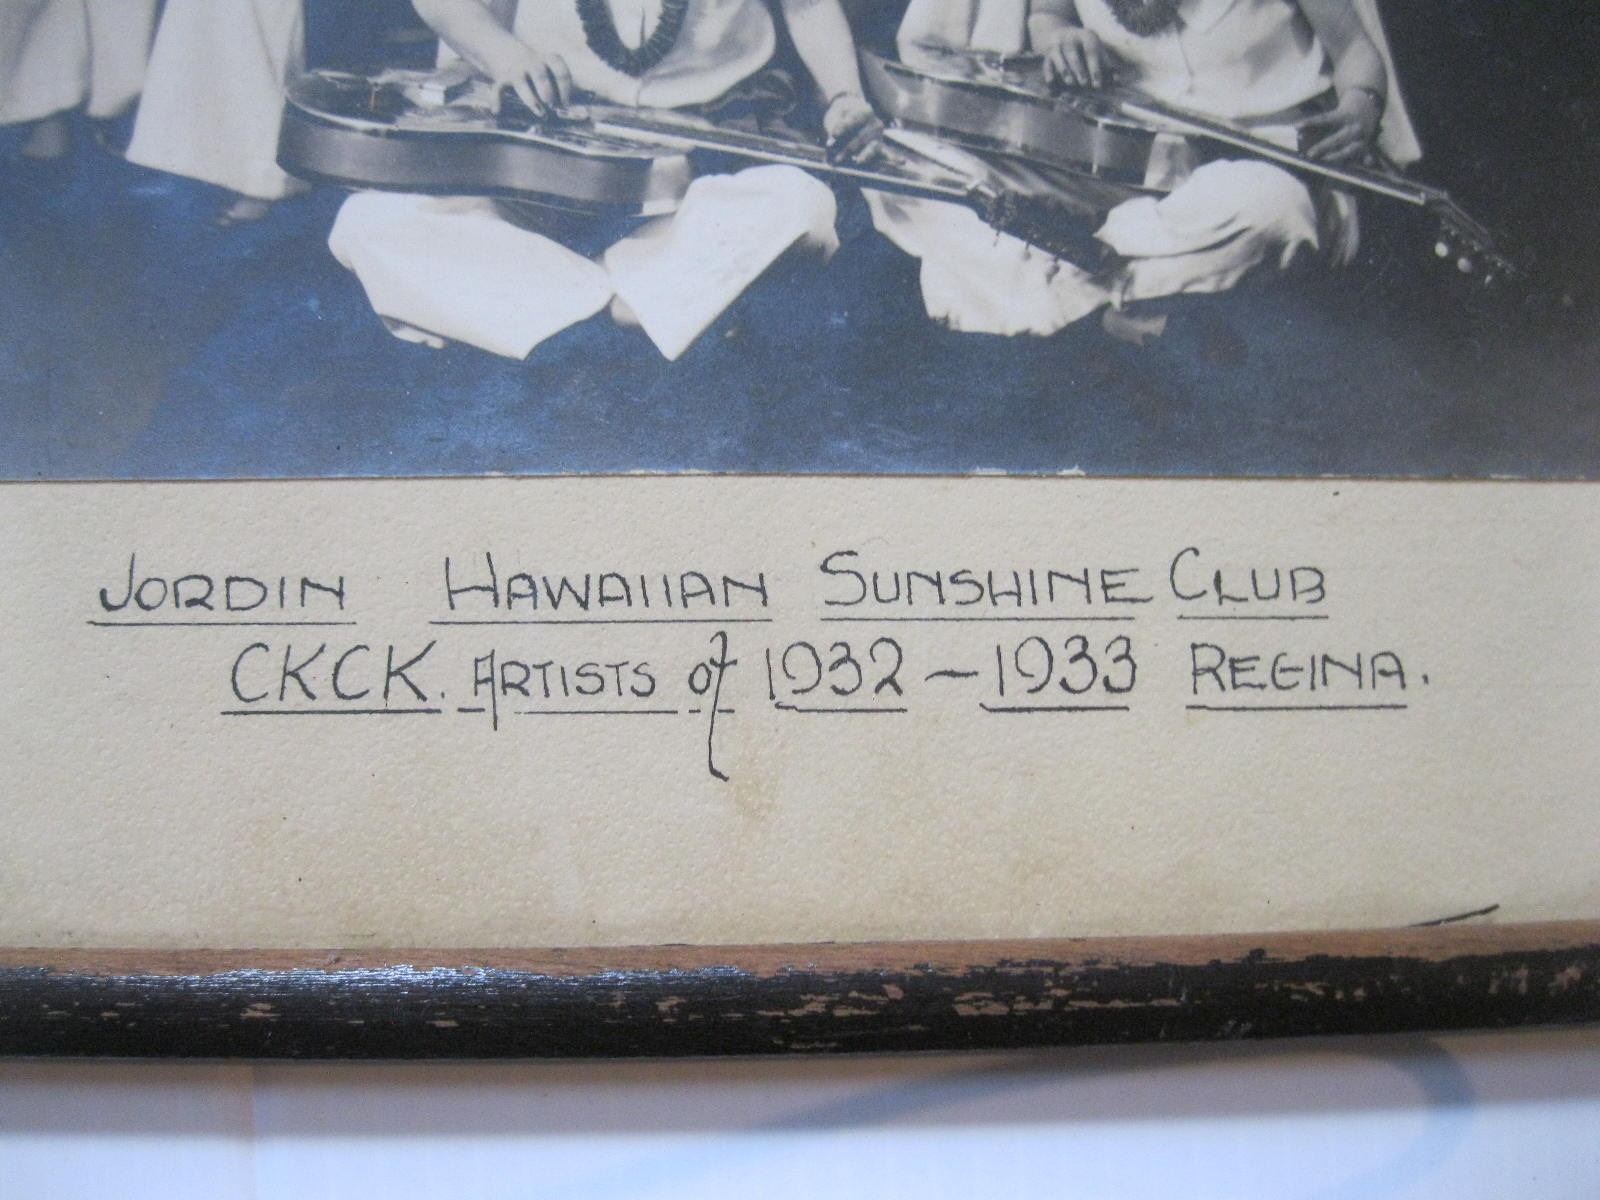 JORDIN HAWAIIAN SUNSHINE CLUB
CKCK. ARTISTS of 1932 - 1933 REGINA.